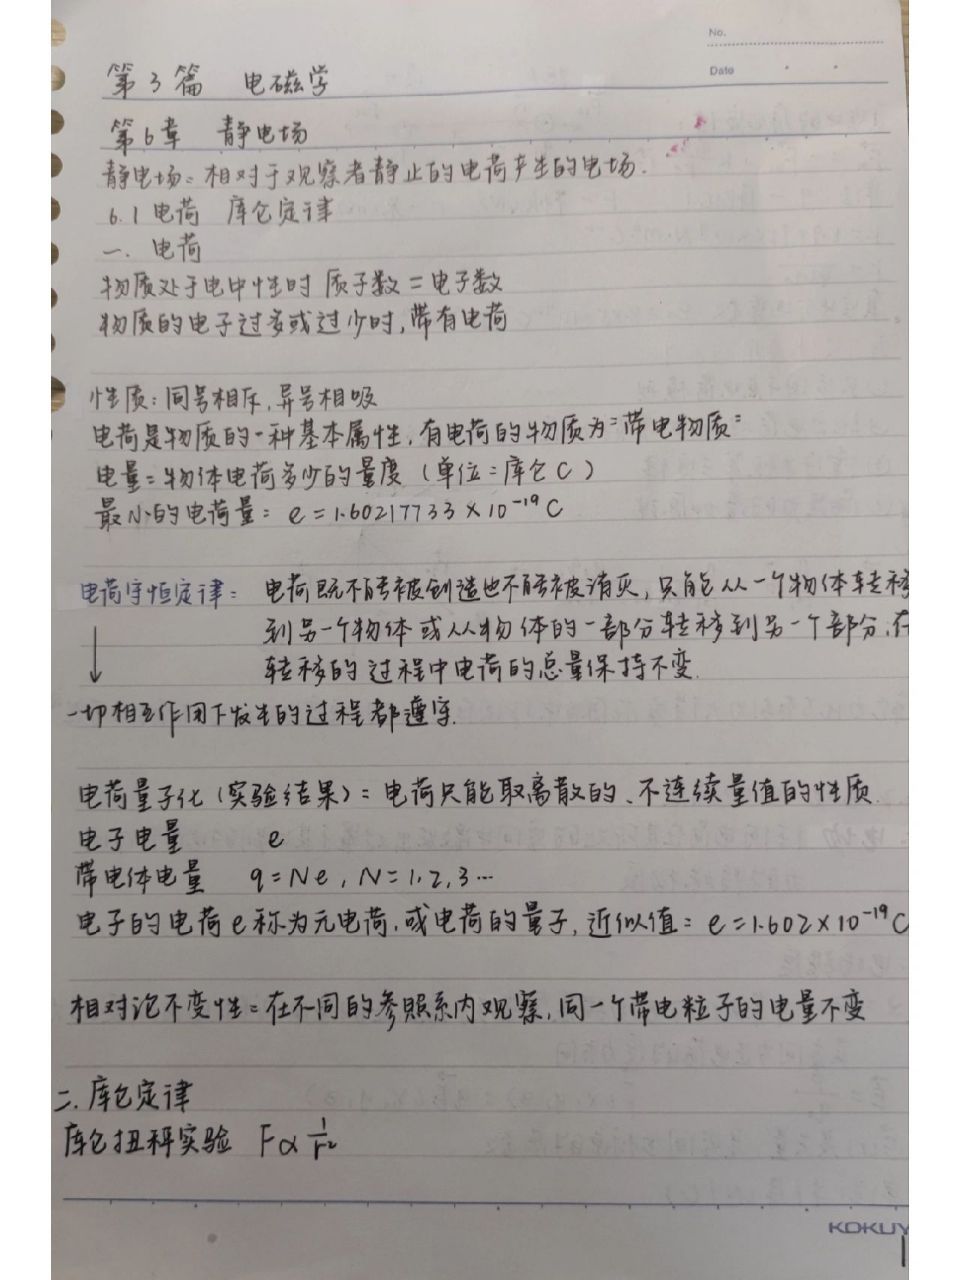 No.
Date
第3篇 电磁学
第6章 静电场
静电场：相对于观察者静止的电荷产生的电场.
6.1 电荷 库仑定律
一. 电荷
物质处于电中性时 质子数=电子数
物质的电子过多或过少时,带有电荷
性质：同号相斥,异号相吸
电荷是物质的一种基本属性,有电荷的物质为"带电物质"
电量：物体电荷多少的量度（单位：库仑C）
最小的电荷量：e=1.60217733×10⁻¹⁹C
电荷守恒定律： 电荷既不能被创造也不能被消灭,只能从一个物体转移
到另一个物体或从物体的一部分转移到另一个部分,在
转移的过程中电荷的总量保持不变.
↓
一切相互作用下发生的过程都遵守.
电荷量子化(实验结果)：电荷只能取离散的、不连续量值的性质.
电子电量 e
带电体电量 q=Ne, N=1,2,3…
电子的电荷e称为元电荷,或电荷的量子,近似值：e=1.602×10⁻¹⁹C
相对论不变性：在不同的参照系内观察,同一个带电粒子的电量不变
二. 库仑定律
库仑扭秤实验 F∝1/r²
KOKUY
1